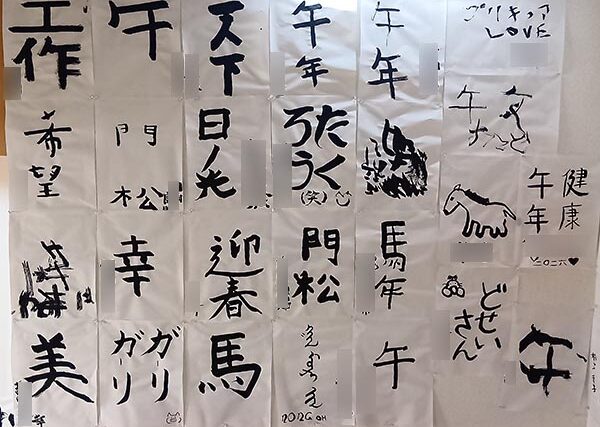 工作
午
天下
午年
午年
プリキュア
LOVE
希望
門松
たく
ろう
(笑)
午
健康
午年
二〇二六♥
幸
迎春
門松
馬年
どせい
さん
美
ガーリ
ガーリ
馬
2026
午
午